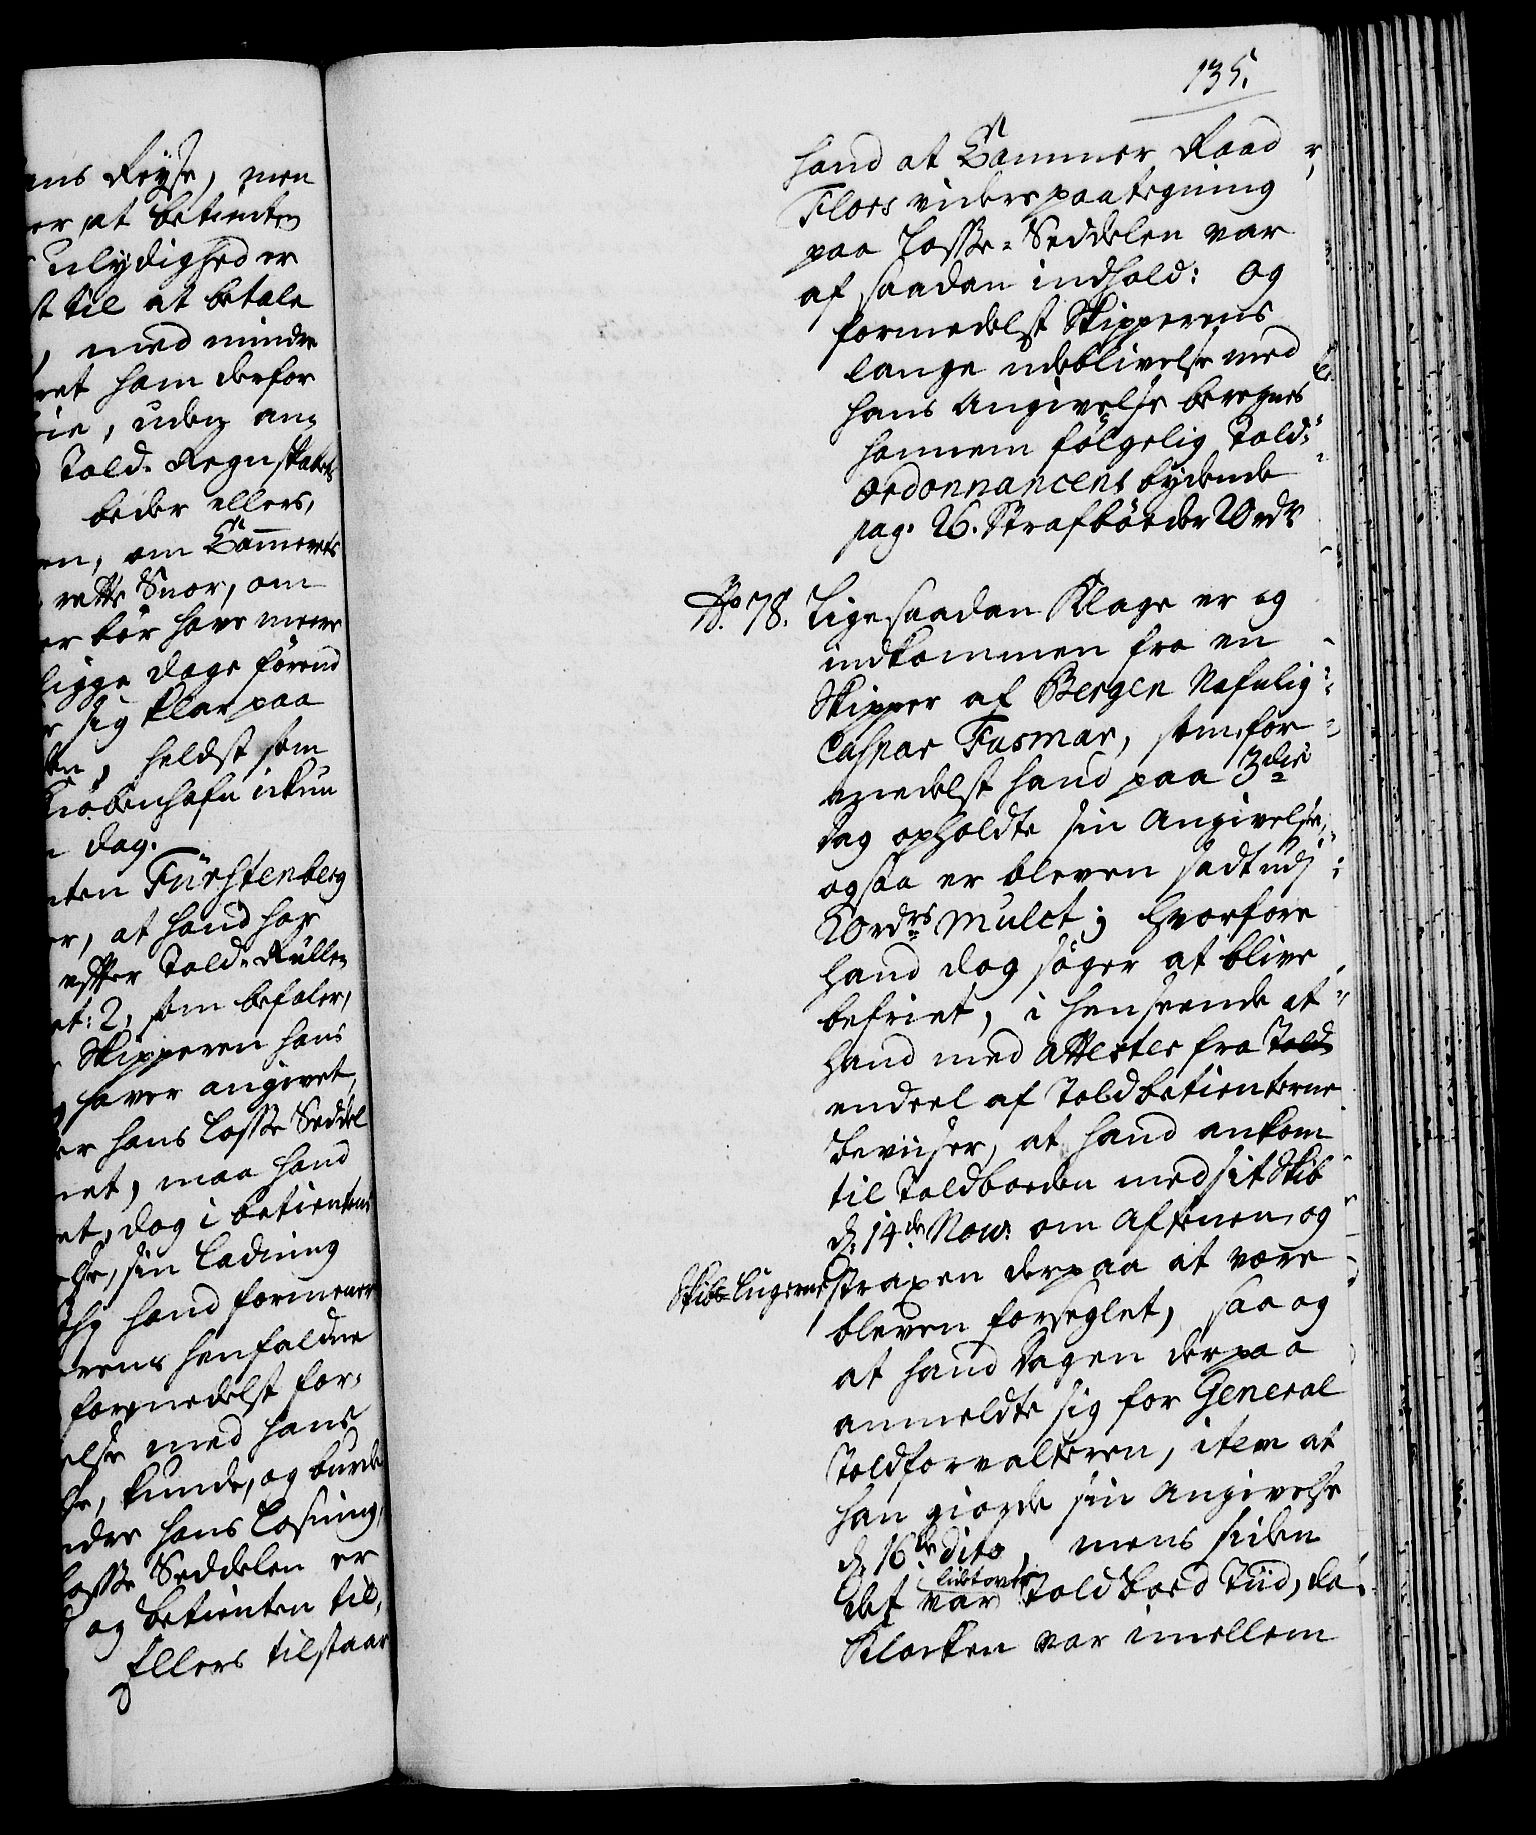 ns Reyse, men
er at betienten
ulydighed er
st til at betale
, med mindre
ret ham derfor
ie, uden an=
Told-Regnskabets
beder ellers,
en, om Cammerets
rette Snor, om
er bör have meere
ligge dage förend
sig klar paa
en, heldst som
Kiöbenhafn ickun
dag.
ten Fürstenberg
er, at hand har
efter Told-Rullen
et: 2, som befaler,
Skipperen hans
haver angivet,
er hans Losse Seddel
et, maa hand
et, dog i betientens
else, sin Ladning
hand formener
rens henfaldne
formedelst for=
else med hans
se, kunde, og burde
dre hans Losning,
Losse Seddelen er
og betienten til,
Ellers tilstaar
135.
hand at Cammer Raad
Floes viders paategning
paa Losse-Seddelen var
af saadan indhold: og
formedelst Skipperens
lange udeblivelse med
hans Angivelse beregnes
hannem fölgelig Told-
Ordonnancens lydende
pag: 26. Straf böder 20 rdr
No 78. Ligesaadan Klage er og
indkommen fra en
Skipper af Bergen Nafnlig
Caspar Fasmar, som for-
medelst hand paa 3die
dag opholdte sin Angivelse,
ogsaa er bleven sadt udj
20 rdrs Mulct; hvorfore
hand dog söger at blive
befriet, i henseende at
hand med Attester fra Told
endeel af Toldbetienterne
beviiser, at hand ankom
til Toldboden med sit Skib
d: 14de Nov: om Aftenen, og
Skibs-Lugerne straxen derpaa at være
bleven forseglet, saa og
at hand dagen derpaa
anmeldte sig for General
Toldforvalteren, item at
han giorde sin Angivelse
d: 16de dito, mens siden
lidet over
det var Toldboed Tiid, da
Klocken var imellem